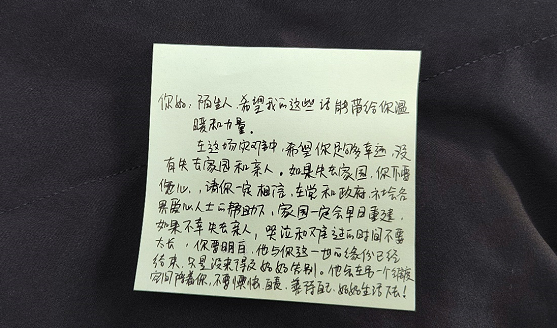 你好，陌生人，希望我的这些话能带给你温
暖和力量。
在这场灾难中，希望你足够幸运，没
有失去家园和亲人。如果失去家园，你不要
伤心，请你一定相信，在党和政府，社会各
界爱心人士的帮助下，家园一定会早日重建，
如果不幸失去亲人，哭泣和难过的时间不要
太长，你要明白，他与你这一世的缘份已经
结束，只是没来得及好好告别。他会在另一个
空间陪着你，不要懊悔、自责，善待自己，好好生活下去！